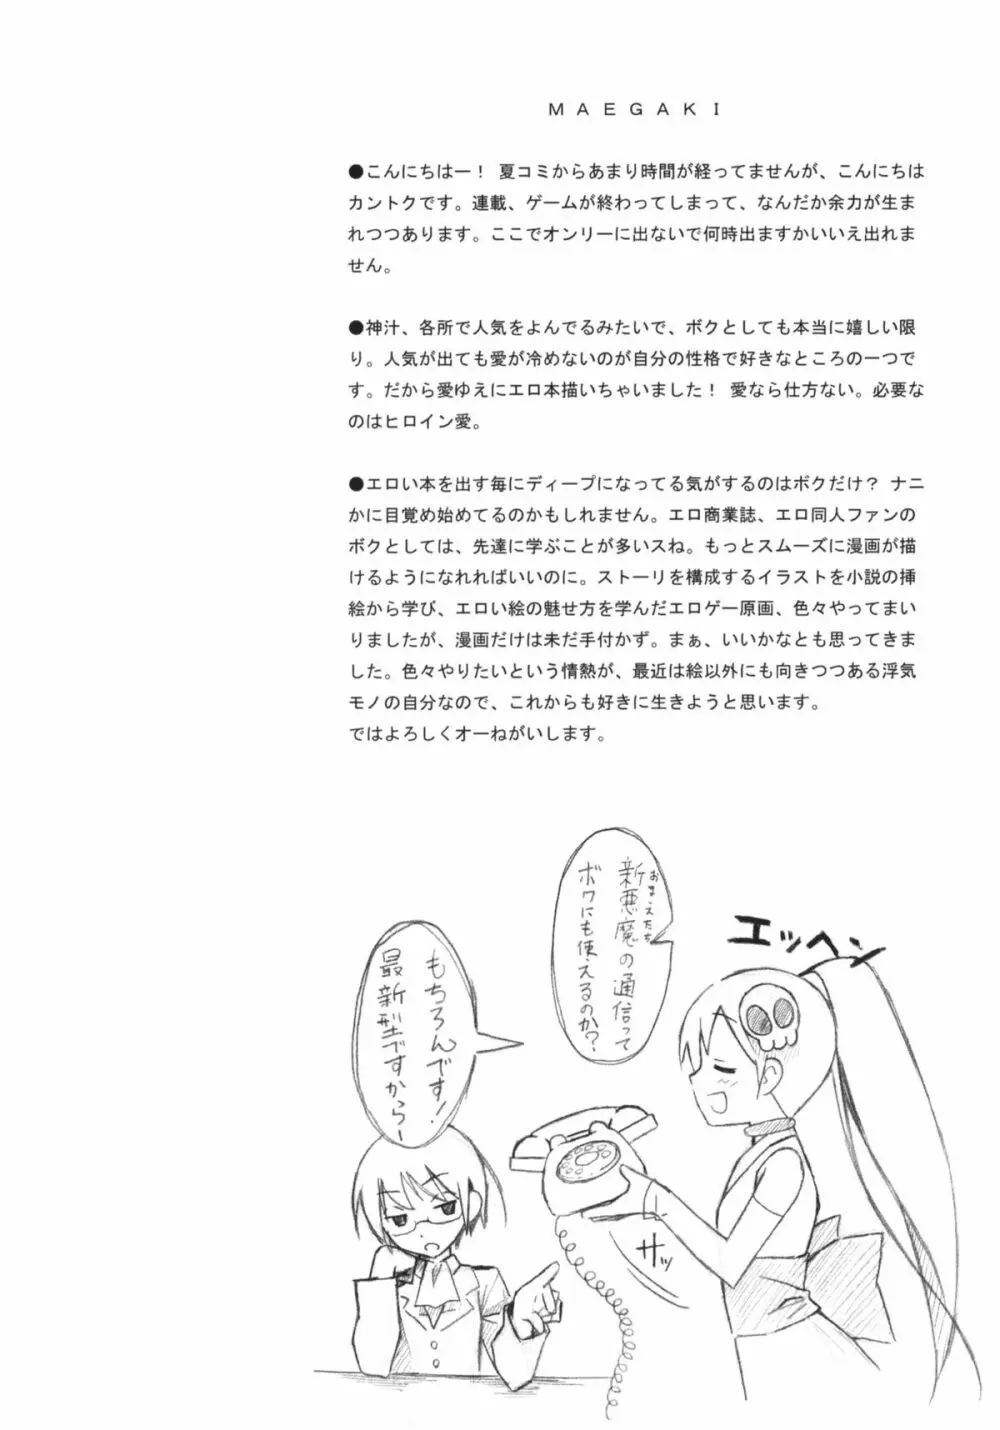 MAEGAKI
●こんにちはー! 夏コミからあまり時間が経ってませんが、こんにちは
カントクです。連載、ゲームが終わってしまって、なんだか余力が生ま
れつつあります。ここでオンリーに出ないで何時出ますかいいえ出れま
せん。
●神汁、各所で人気をよんでるみたいで、ボクとしても本当に嬉しい限
り。人気が出ても愛が冷めないのが自分の性格で好きなところの一つで
す。だから愛ゆえにエロ本描いちゃいました! 愛なら仕方ない。必要な
のはヒロイン愛。
●エロい本を出す毎にディープになってる気がするのはボクだけ? ナニ
かに目覚め始めてるのかもしれません。エロ商業誌、エロ同人ファンの
ボクとしては、先達に学ぶことが多いスね。もっとスムーズに漫画が描
けるようになれればいいのに。ストーリを構成するイラストを小説の挿
絵から学び、エロい絵の魅せ方を学んだエロゲー原画、色々やってまい
りましたが、漫画だけは未だ手付かず。まぁ、いいかなとも思ってきま
した。色々やりたいという情熱が、最近は絵以外にも向きつつある浮気
モノの自分なので、これからも好きに生きようと思います。
ではよろしくオーねがいします。
エッヘン
おまえたち
新悪魔の通信って
ボクにも使えるのか?
もちろんです!
最新型ですからー
サッ